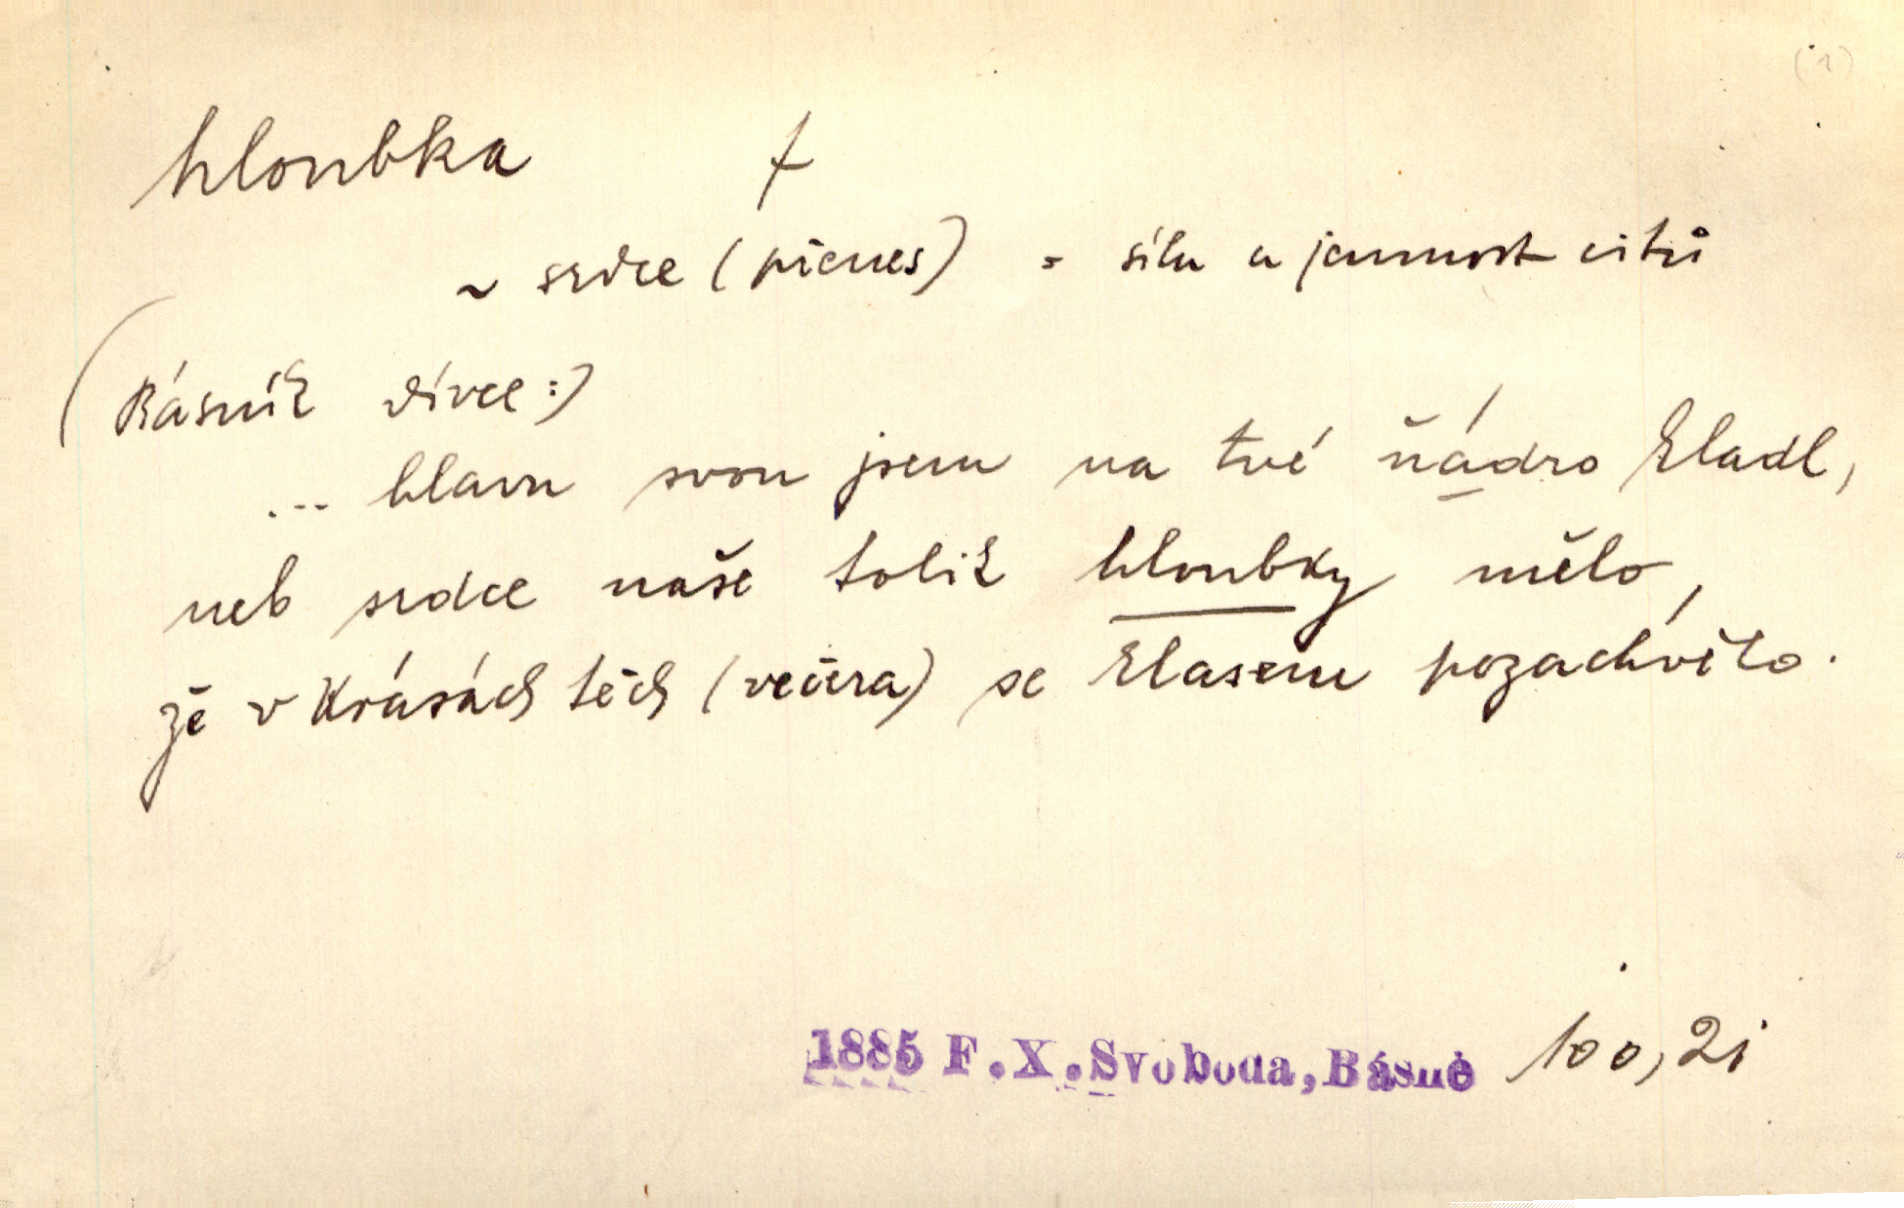 (1)
hloubka f
~ srdce (přenes) = síla a jemnost citů
(Básník dívce:)
... hlavu svou jsem na tvé ňádro kladl,
neb srdce naše tolik hloubky mělo,
že v krásách těch (večera) se hlasem pozachvělo.
1885 F.X.Svoboda, Básně 100, 2i